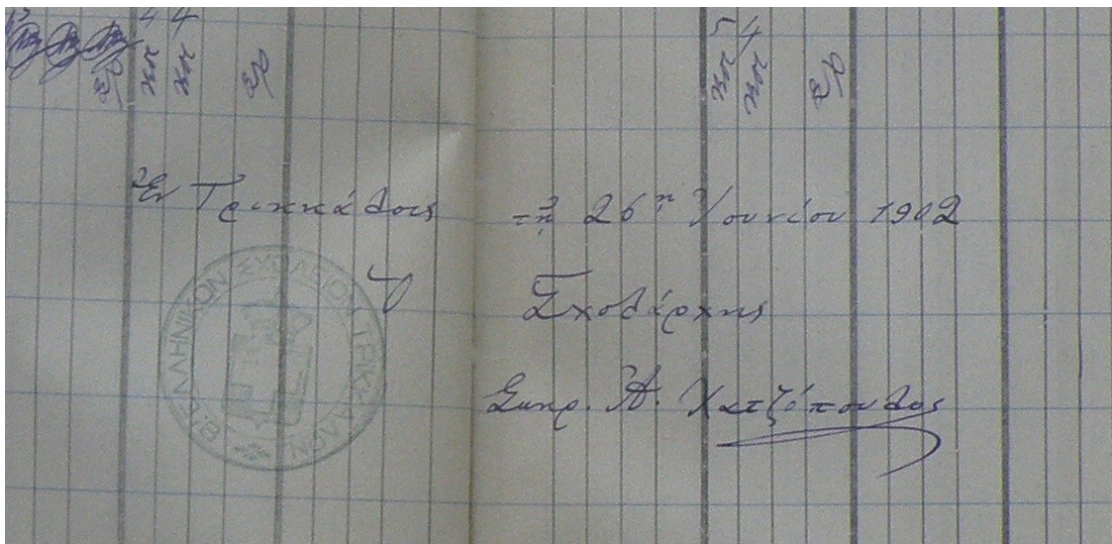 Ἐν Τρικκάλοις τῇ 26ῃ Ἰουνίου 1902
Ὁ Σχολάρχης
Σωκρ. Ἀ. Χατζόπουλος
Β! ΕΛΛΗΝΙΚΟΝ ΣΧΟΛΕΙΟΝ ΤΡΙΚΚΑΛΩΝ